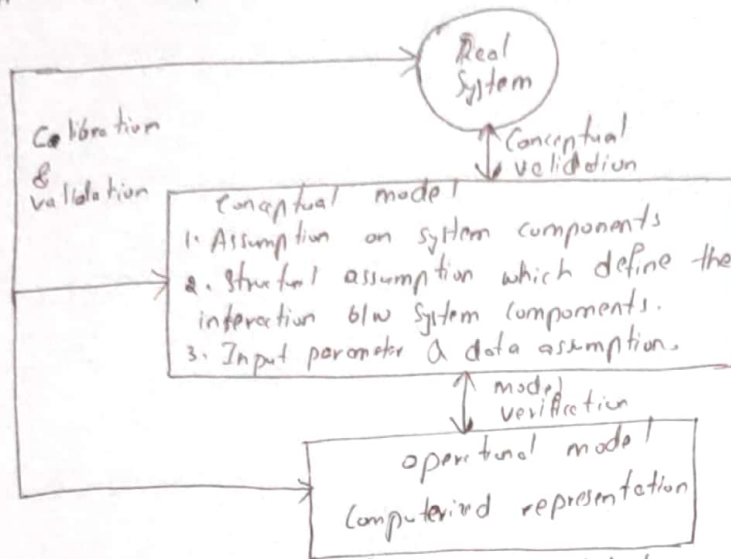 Real
System
Calibration
&
validation
Conceptual
validation
Conceptual model
1. Assumption on system components
2. Structural assumption which define the
interaction b/w system components.
3. Input parameter & data assumption.
model
verification
operational model
Computerized representation